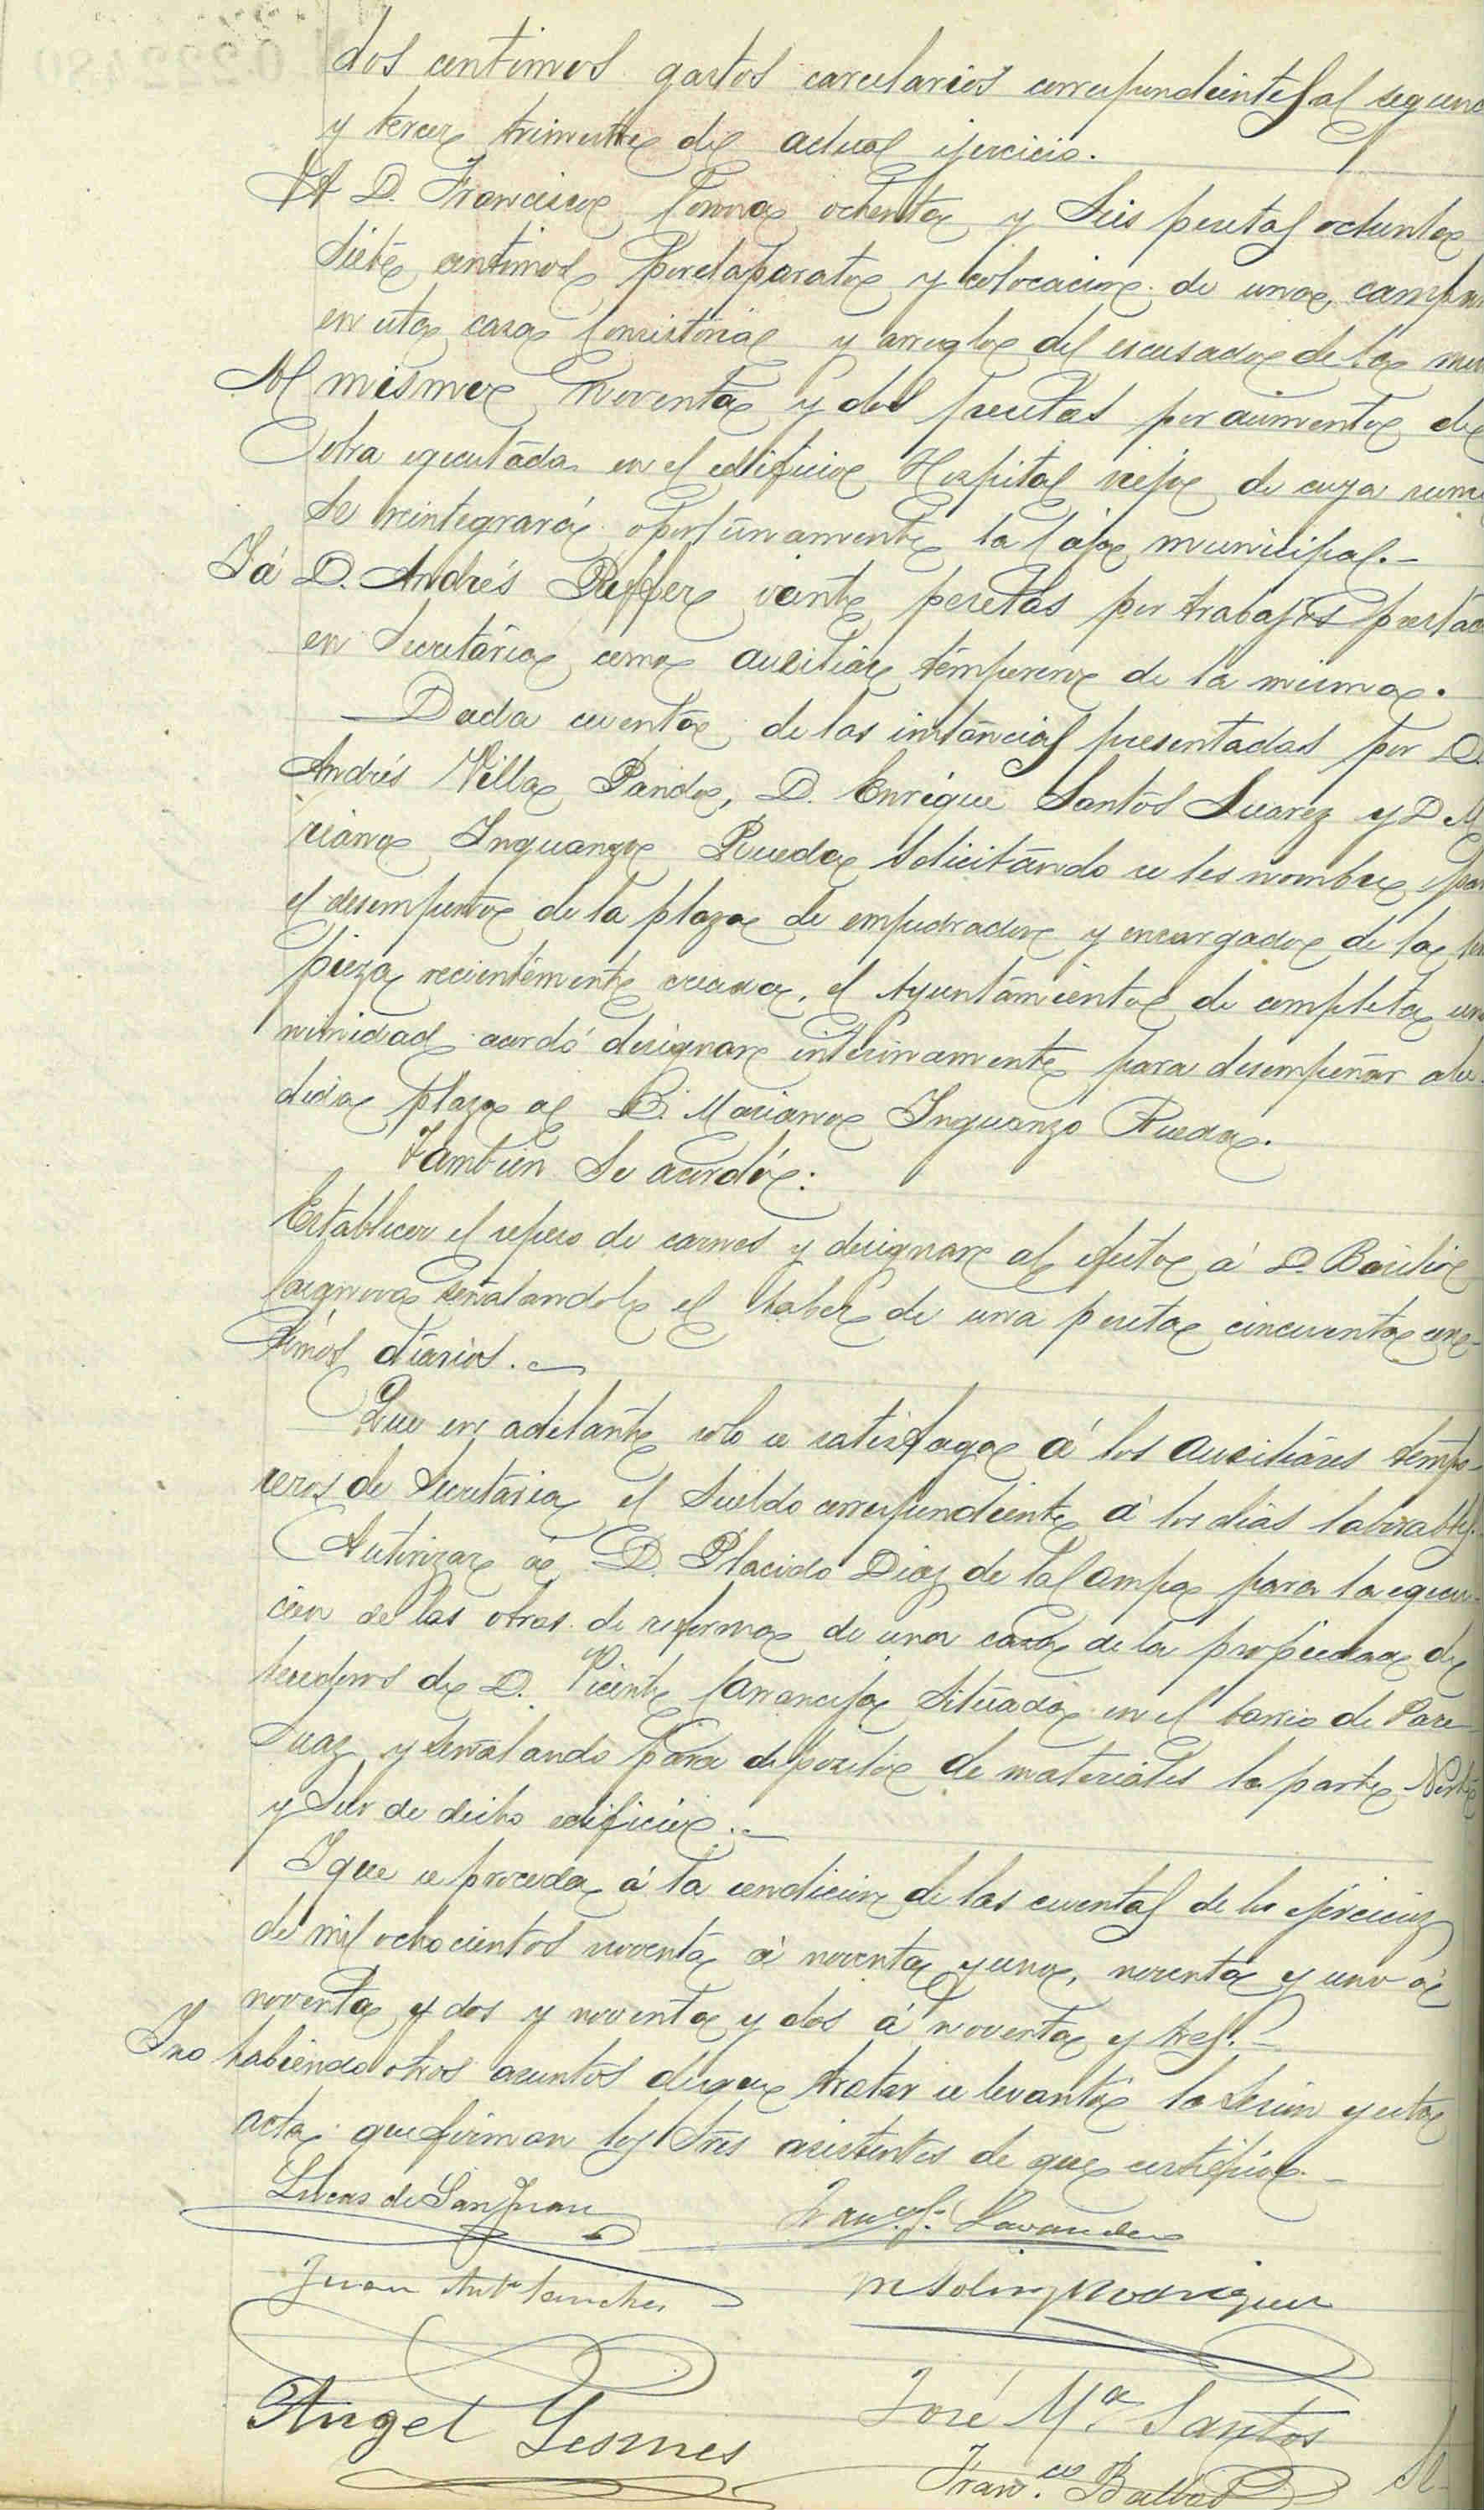 dos centimos gastos carcelarios correspondientes al segun
y tercer trimestre del actual ejercicio.
A D. Francisco Conna ochenta y seis pesetas ochenta
siete centimos por el aparato y colocacion de una campa
en esta casa Consistorial y arreglo del escusado de la
Al mismo noventa y dos pesetas por aumento de
obra egecutada en el edificio Hospital viejo de cuya suma
se reintegrará oportunamente la Caja municipal.-
Y á D. Andrés Peffer veinte pesetas por trabajos prestad
en Secretaria como auxiliar temporero de la misma.
Dada cuenta de las instancias presentadas por D.
Andrés Villa Pando, D. Enrique Santos Suarez y D. Ma
riano Inguanzo Rueda solicitando se les nombre par
el desempeño de la plaza de empedrador y encargado de la lim
pieza recientemente creada, el Ayuntamiento de completa una
nimidad acordó designar interinamente para desempeñar alu-
dida plaza al D. Mariano Inguanzo Rueda.
Tambien se acordó:
Establecer el repeso de carnes y designar al efecto á D. Basilio
señalandole el haber de una peseta cincuenta cen-
timos diarios.-
Que en adelante solo se satisfaga á los auxiliares tempo-
reros de Secretaria el sueldo correspondiente á los dias laborables.
Autorizar á D. Placido Diaz de la Campa para la egecu-
cion de las obras de reforma de una casa de la propiedad de
herederos de D. Vicente Carranceja situada en el barrio de Pare-
suaz y señalando para deposito de materiales la parte Norte
y Sur de dicho edificio.-
Y que se proceda á la rendicion de las cuentas de los ejercicios
de mil ochocientos noventa á noventa y uno, noventa y uno á
noventa y dos y noventa y dos á noventa y tres.-
Y no habiendo otros asuntos de que tratar se levantó la sesion y esta
acta que firman los Sres asistentes de que certifico.-
Lucas de San Juan
Franco. J. Lavandera
Juan Anto Sanchez
M Solis y Rodriguez
Angel Lesmes
José Ma Santos
Fran.co Balbas